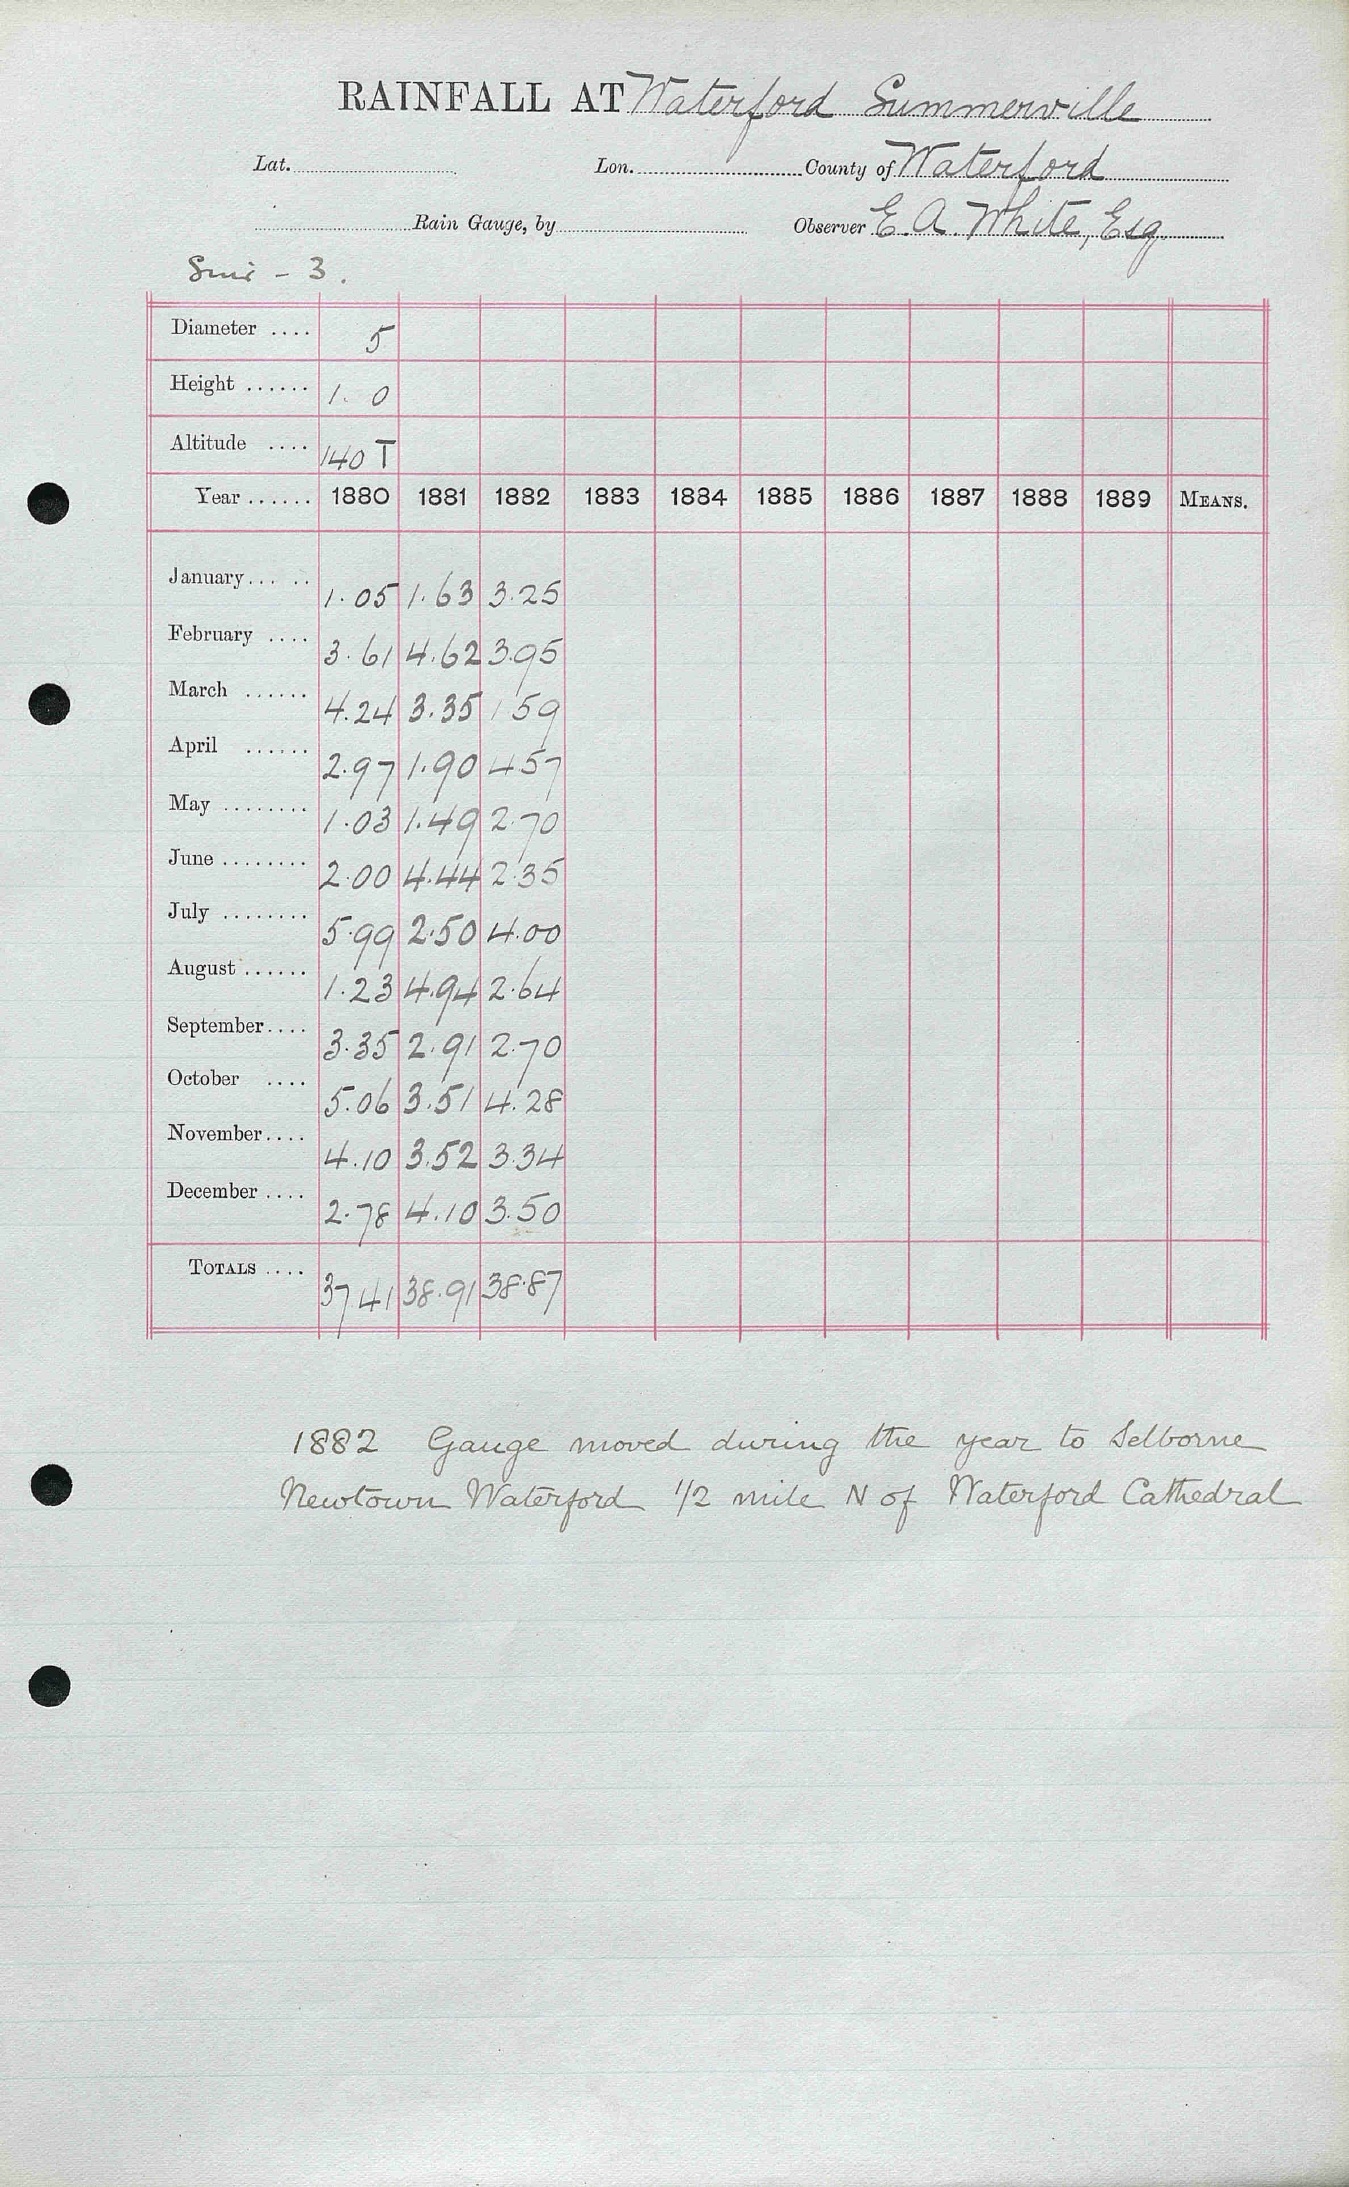 RAINFALL AT Waterford Summerville
Lat. Lon. County of Waterford
Rain Gauge, by Observer E. A. White, Esq.
Suir - 3.
Diameter .... 5
Height ...... 1. 0
Altitude .... 140 T
Year ...... 1880 1881 1882 1883 1884 1885 1886 1887 1888 1889 MEANS.
January ... .. 1.05 1.63 3.25
February .... 3.61 4.62 3.95
March ...... 4.24 3.35 1 59
April ...... 2.97 1.90 4.57
May ........ 1.03 1.49 2.70
June ........ 2.00 4.44 2.35
July ........ 5.99 2.50 4.00
August ...... 1.23 4.94 2.64
September .... 3.35 2.91 2.70
October .... 5.06 3.51 4.28
November .... 4.10 3.52 3.34
December .... 2.78 4.10 3.50
TOTALS .... 37.41 38.91 38.87
1882 Gauge moved during the year to Selborne
Newtown Waterford 1/2 mile N of Waterford Cathedral